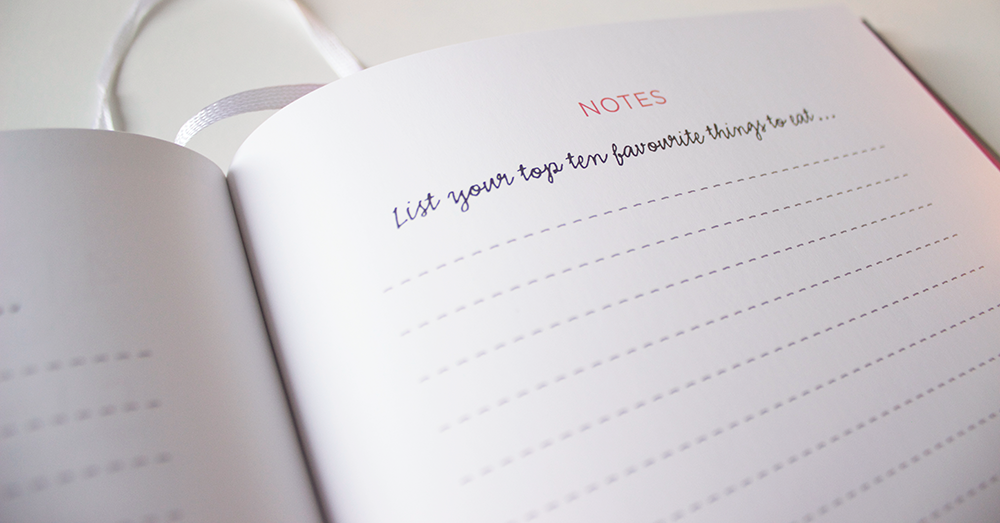 NOTES
List your top ten favourite things to eat...